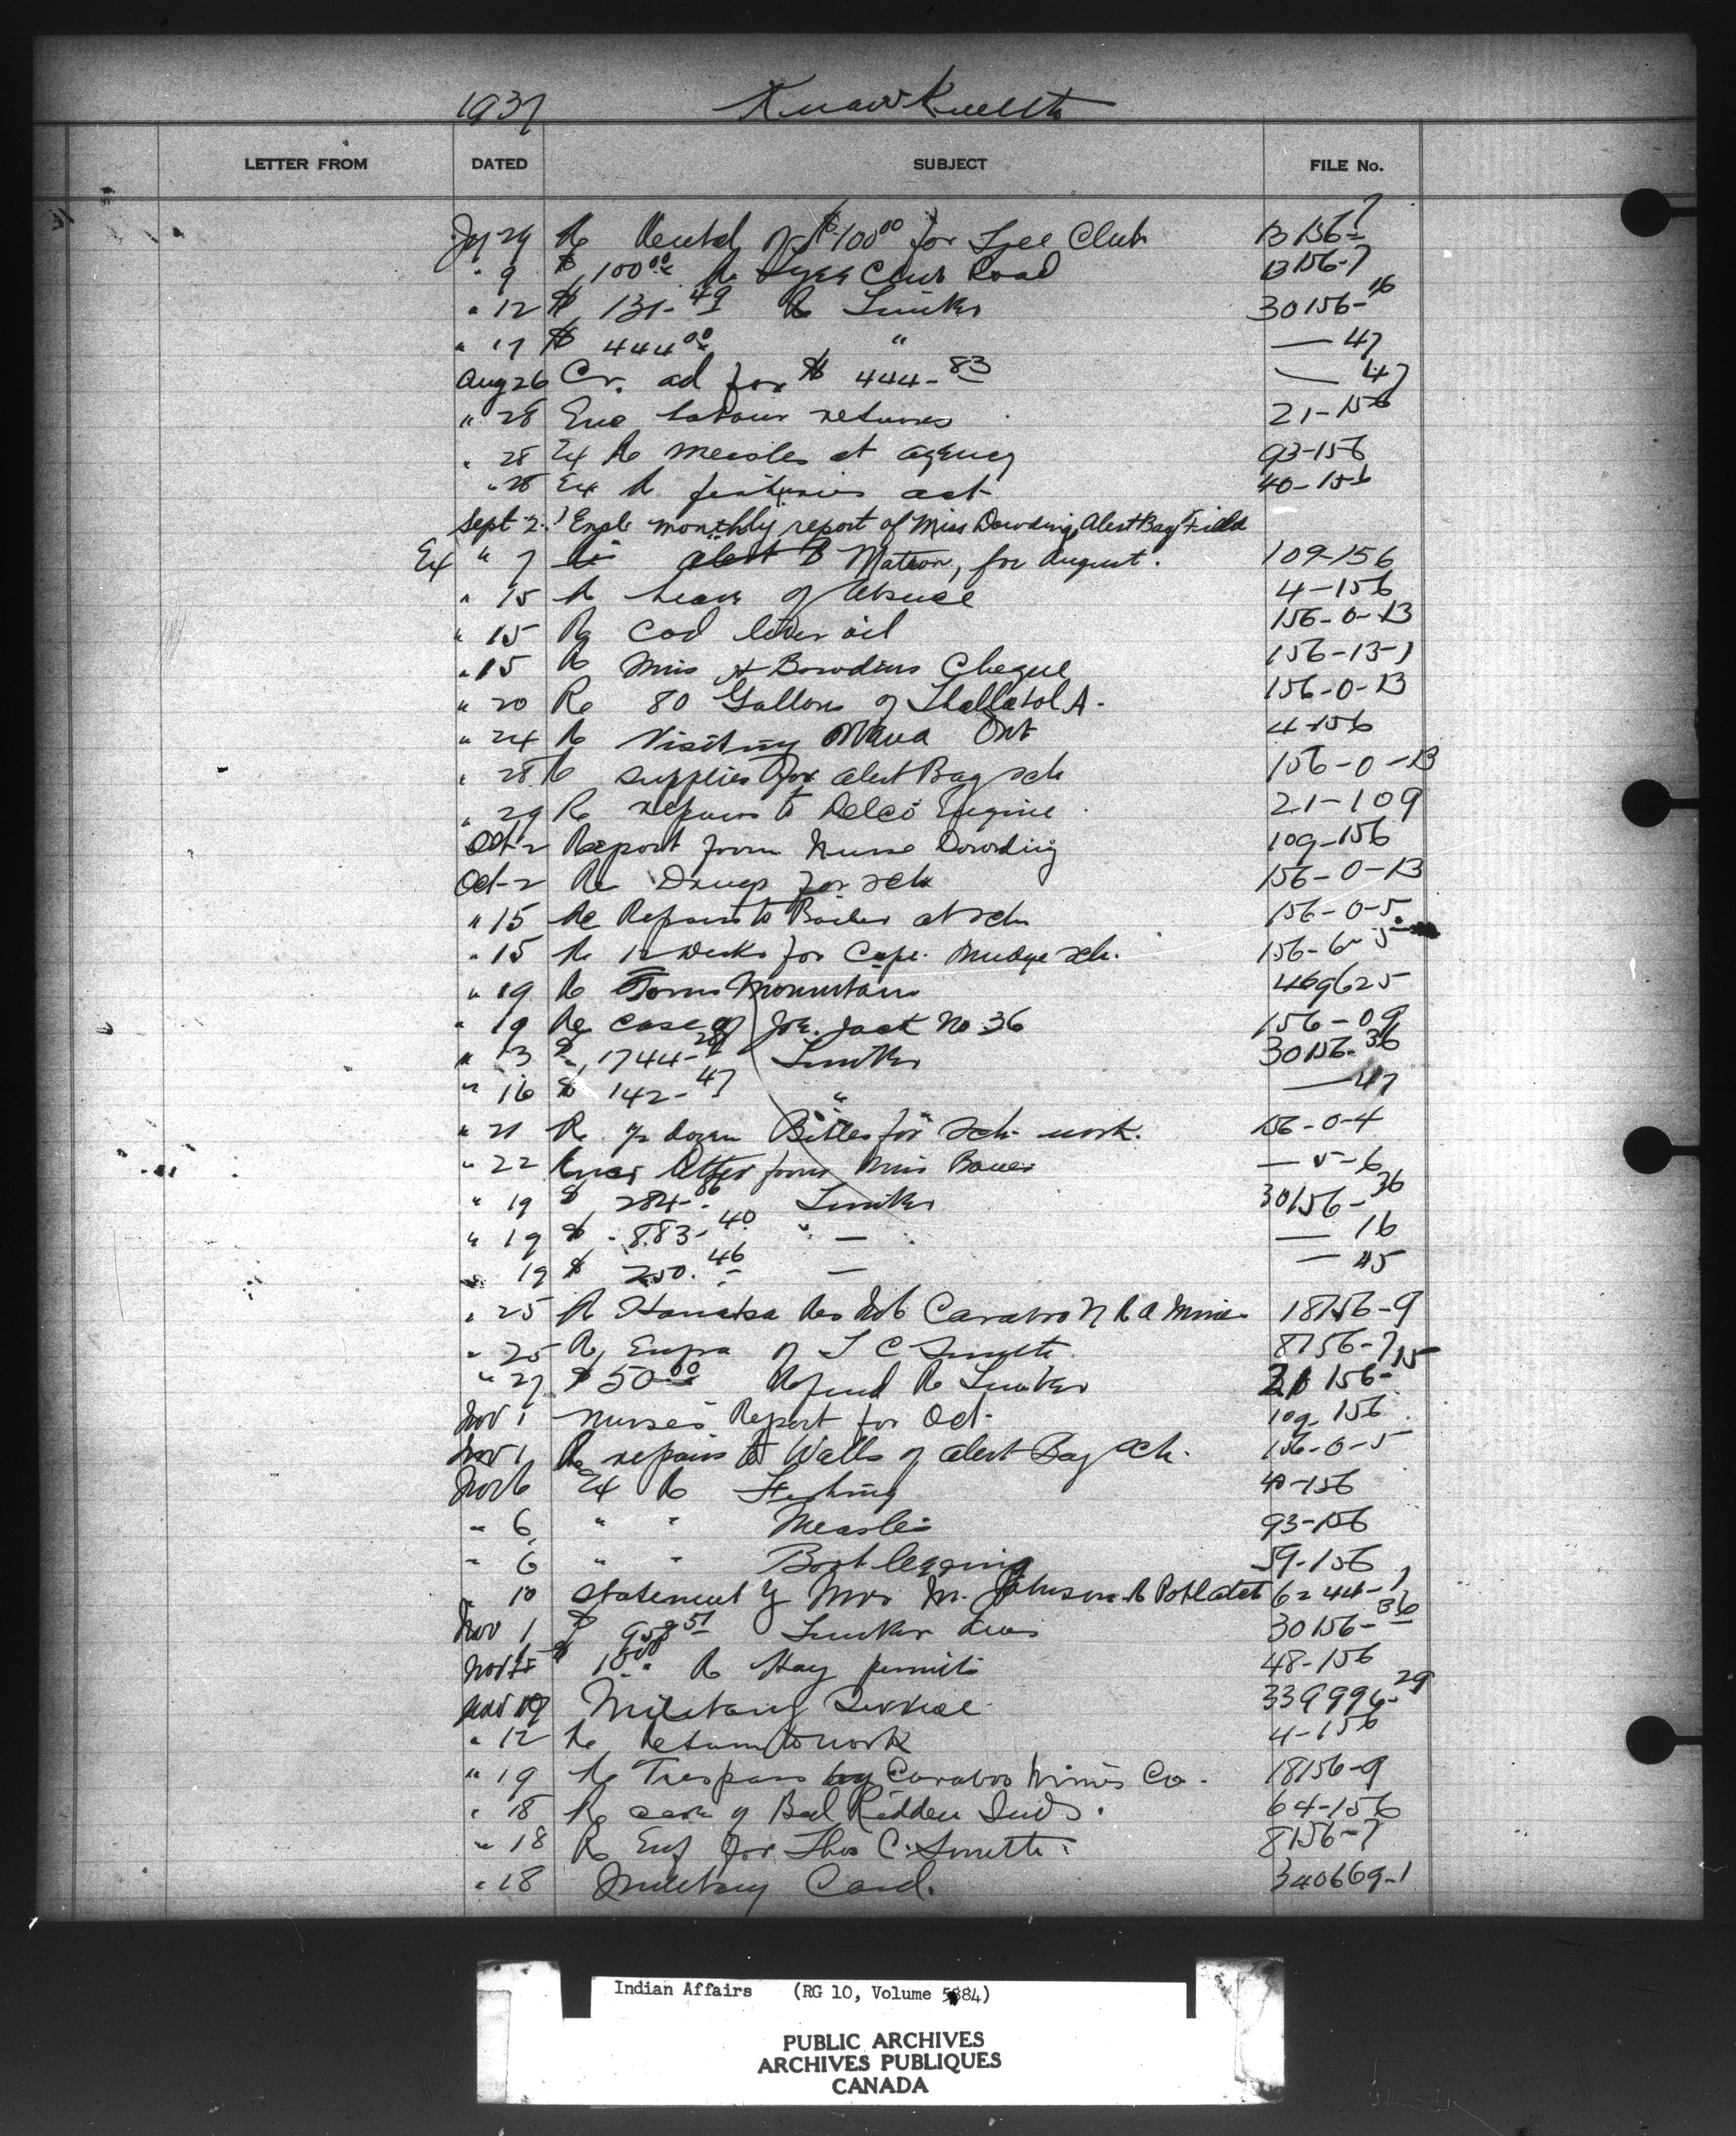 1937
LETTER FROM DATED SUBJECT FILE No.
29 Re Rental of $100 00 for Tyee Club 13156-7
" 9 $ 100 00 Re Tyee Club Road 13156-7
" 12 $ 131-49 Re Timber 30156-16
" 17 $ 444 00 " — 47
Aug 26 Cr. ad for $ 444-83 — 47
" 28 labour returns 21-156
" 28 Ex Re measles at agency 93-156
" 28 Ex Re fisheries act 40-156
Sept 2 Encl monthly report of Miss Dowding, Alert Bay Field
Ex " 7 Matron, for August. 109-156
" 15 Re Leave of Absence 4-156
" 15 Re Cod liver oil 156-0-13
" 15 Re Miss Cheque 156-13-1
" 20 Re 80 Gallons of A. 156-0-13
" 24 Re Visiting Ottawa Ont 4-156
" 28 Re supplies for Alert Bay sch 156-0-13
" 29 Re repairs to Delco Engine 21-109
Oct-2 Report from Nurse Dowding 109-156
Oct-2 Re Drugs for sch 156-0-13
" 15 Re Repairs to Boiler at sch 156-0-5
" 15 Re 12 Desks for Cape Mudge sch. 156-6-5
" 19 Re 469625
" 19 Re case of Joe Jack No 36 156-09
" 13 $ 1744-28 Timber 30156-36
" 16 $ 142-47 " — 47
" 21 Re ½ dozen Bibles for Sch work. 156-0-4
" 22 letter from Miss — 5-6
" 19 $ 284-86 Timber 30156-36
" 19 $ 883-40 " — — 16
" 19 $ 250.46 — — 45
" 25 Re Res No 6 Mine 18156-9
" 25 Re of T C Smith 8156-7
" 27 $ 50 00 Refund Re Timber 156-15
Nov 1 Nurse's Report for Oct- 109-156
Nov 1 Re repairs to Walls of Alert Bay Sch. 156-0-5
Nov 6 Ex Re Fishing 40-156
" 6 " " Measles 93-156
" 6 " " Bootlegging 59-156
" 10 Statement of Mrs M. Johnson Re Potlatch 6244-1
Nov 1 $ 958 51 Timber dues 30156-36
Nov $ Re Hay permits 48-156
Nov 19 Military Service 339996-29
" 12 Re Return to work 4-156
" 19 Re Trespass by Mines Co. 18156-9
" 18 Re care of Bed Ridden Inds. 64-156
" 18 Re Enf for Thos C. Smith 8156-7
" 18 Military Card. 340669-1
Indian Affairs (RG 10, Volume 5884)
PUBLIC ARCHIVES
ARCHIVES PUBLIQUES
CANADA